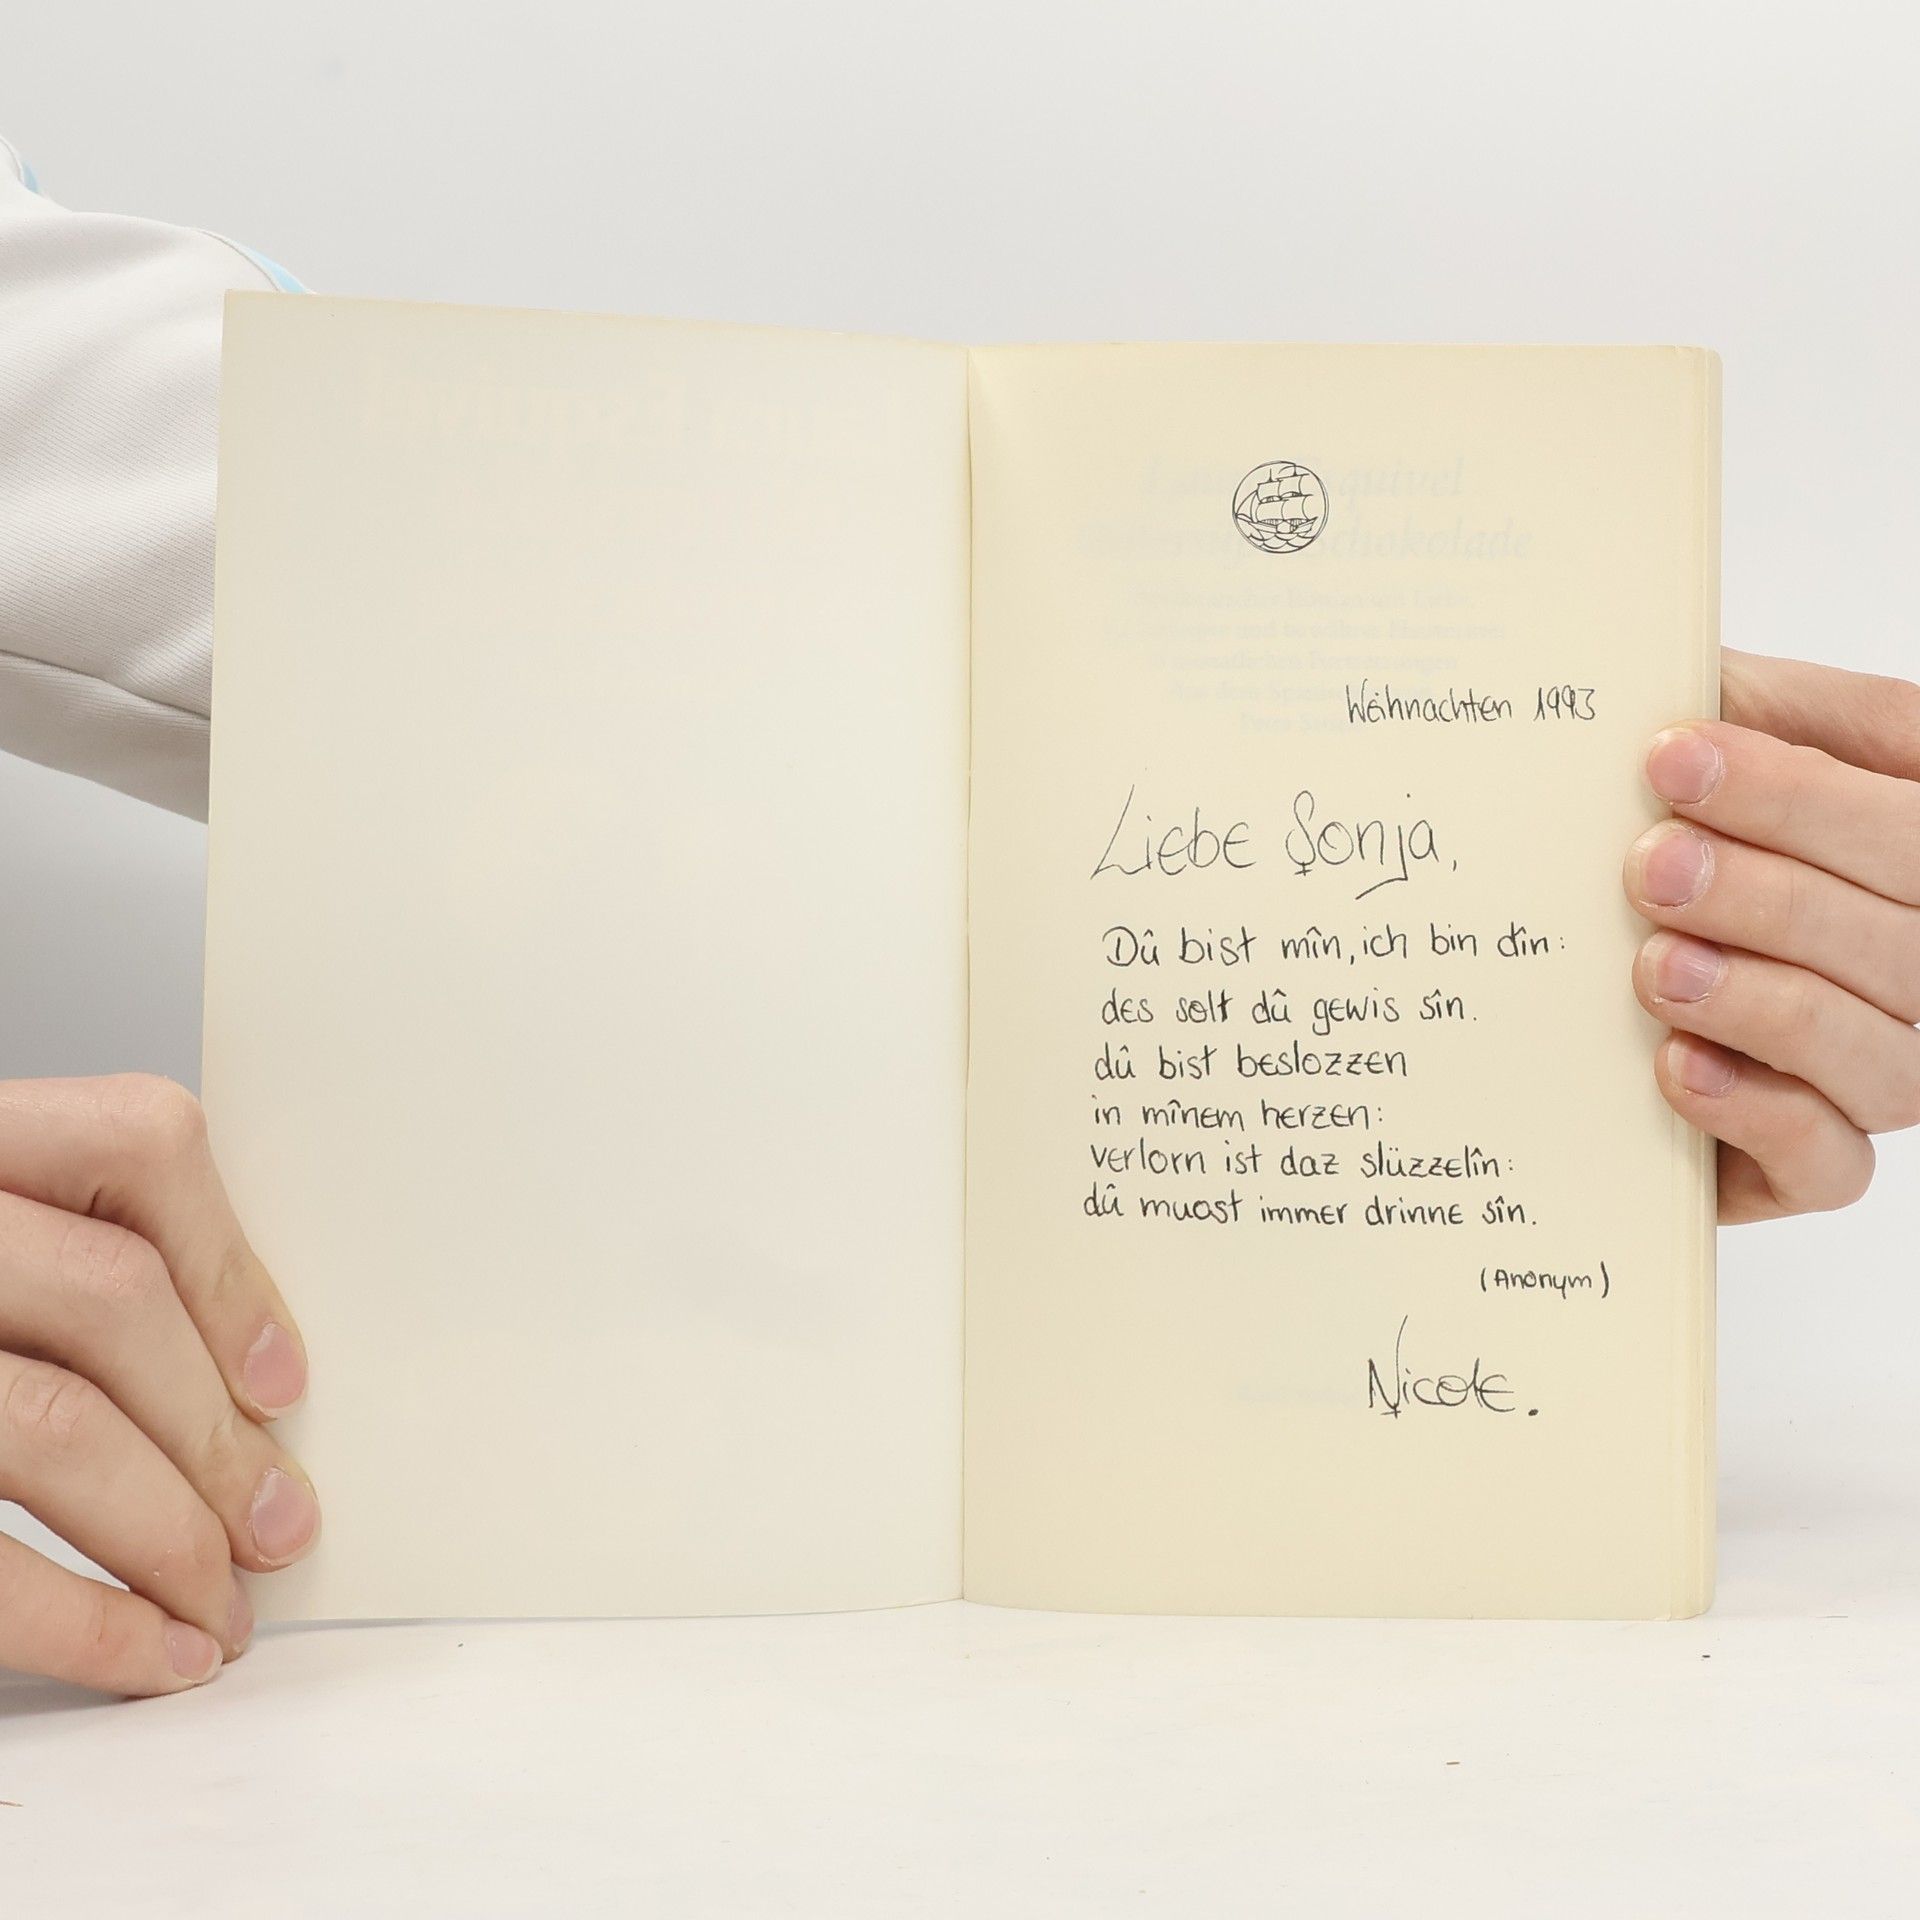 Weihnachten 1993
Liebe Sonja,
Dû bist mîn, ich bin dîn:
des solt dû gewis sîn.
dû bist beslozzen
in mînem herzen:
verlorn ist daz slüzzelîn:
dû muost immer drinne sîn.
(Anonym)
Nicole.